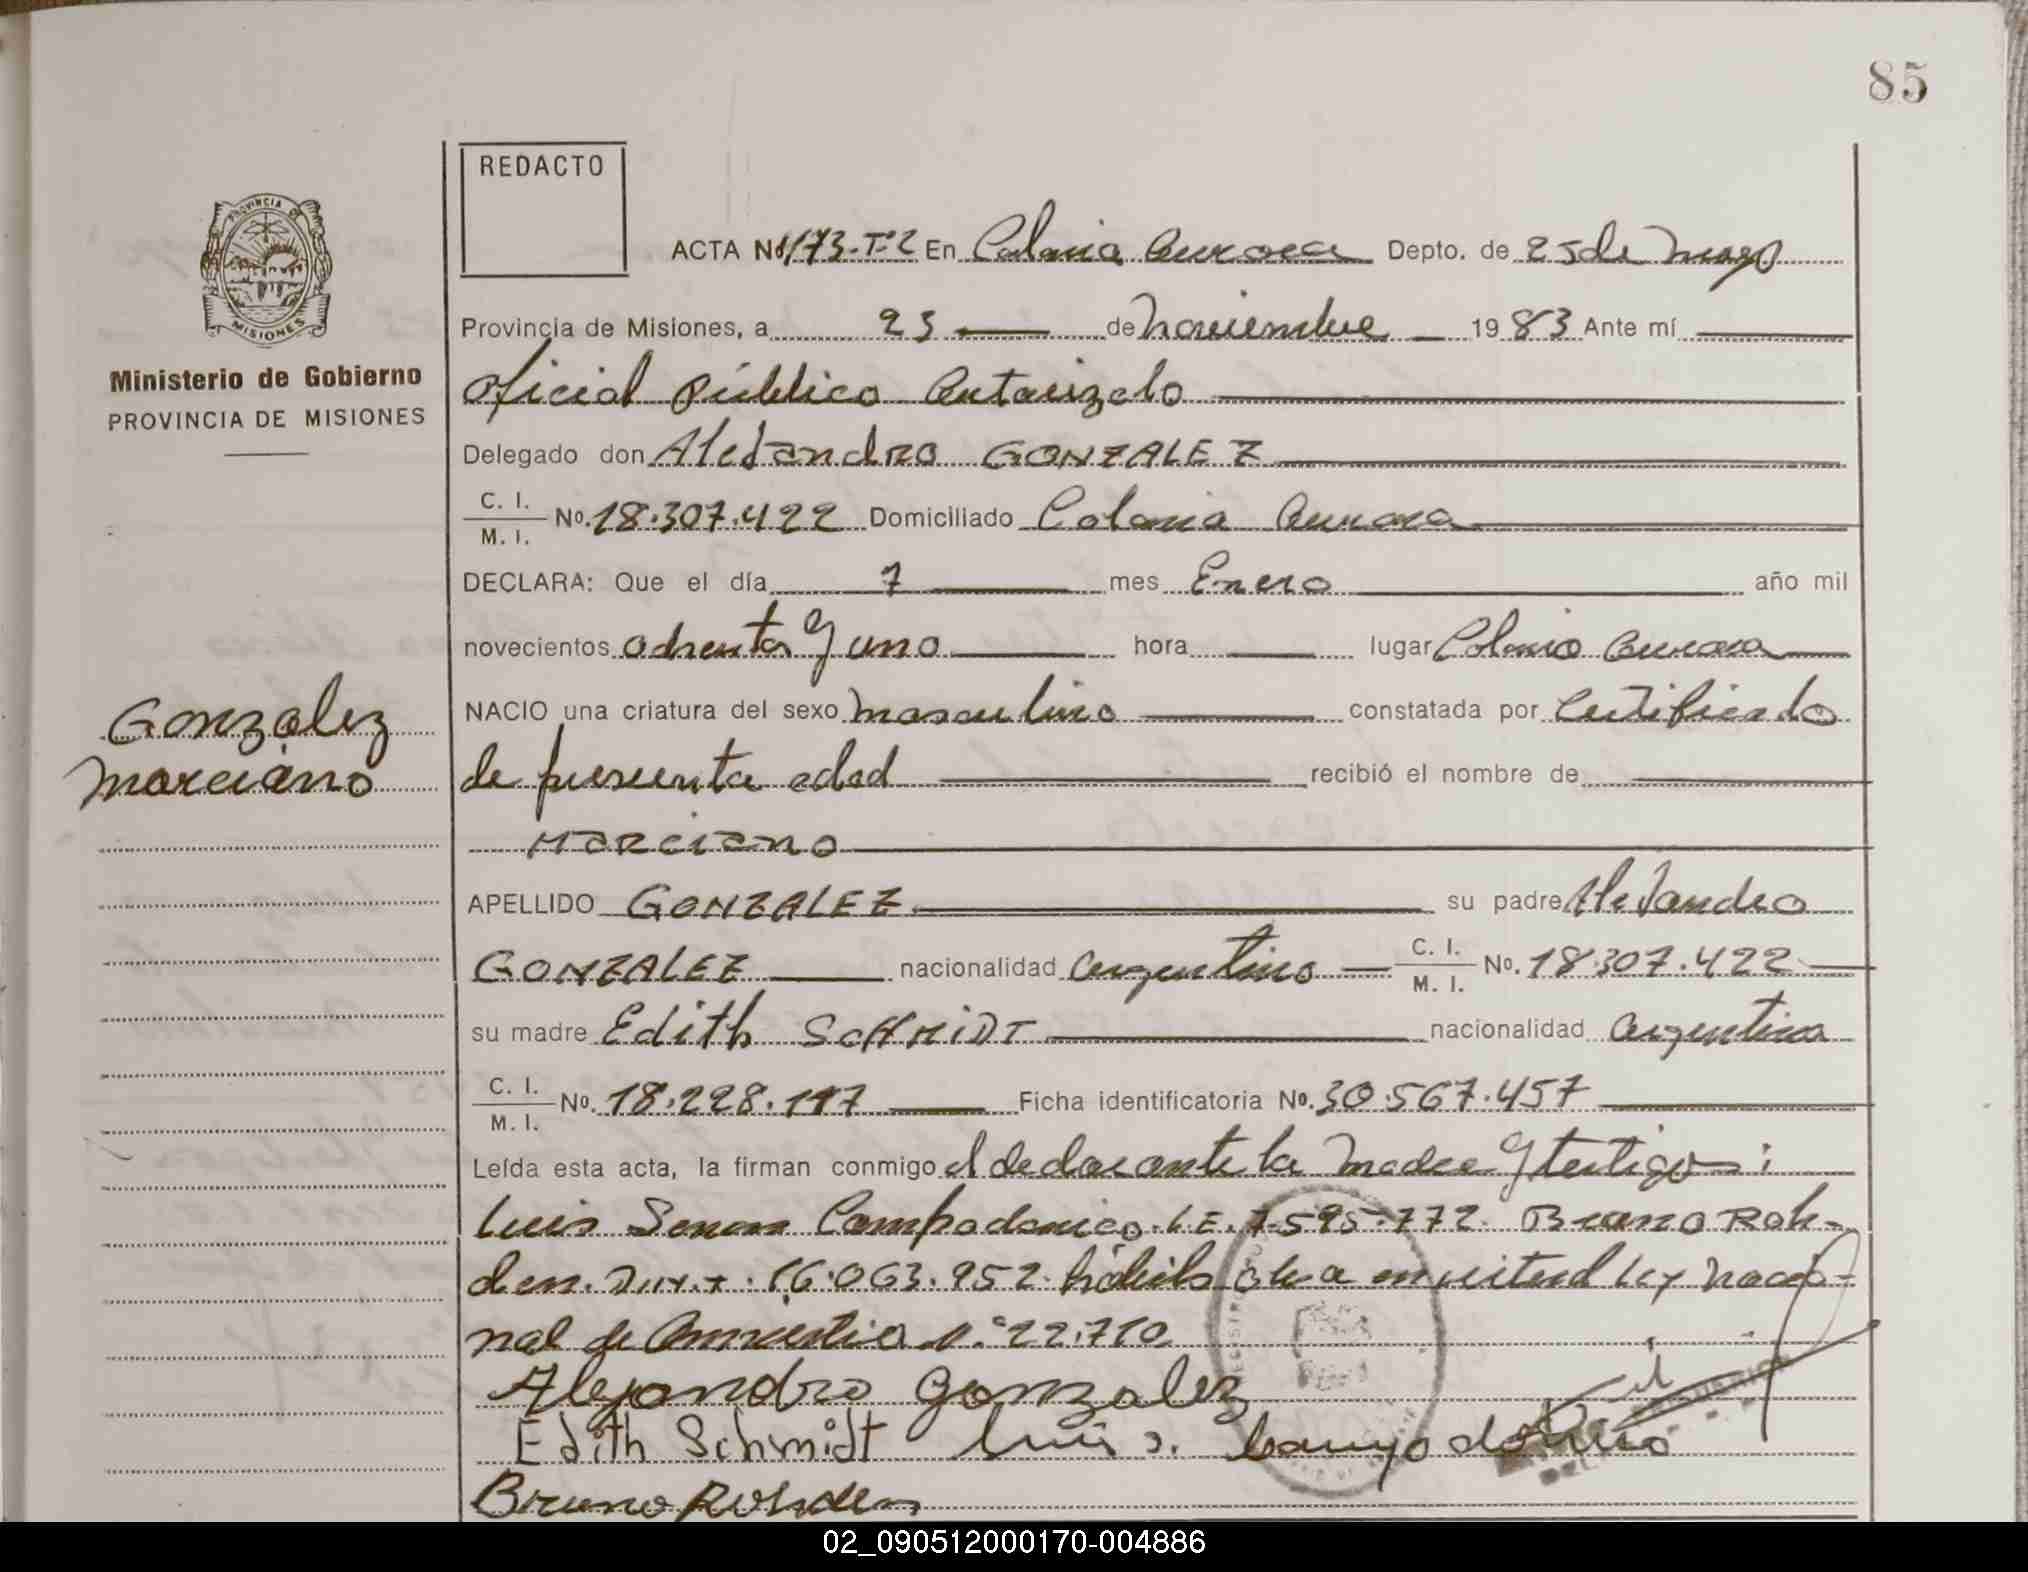 85
REDACTO
ACTA Nº 173-Tº2 En Colonia Aurora Depto. de 25 de Mayo
PROVINCIA DE
MISIONES
Provincia de Misiones, a 23 de Noviembre 1983 Ante mí
Ministerio de Gobierno
PROVINCIA DE MISIONES
Oficial Público Autorizado
Delegado don Alejandro GONZALEZ
C. I.
M. I. Nº. 18.307.422 Domiciliado Colonia Aurora
DECLARA: Que el día 7 mes Enero año mil
novecientos ochenta y uno hora lugar Colonia Aurora
Gonzalez
Marciano
NACIO una criatura del sexo masculino constatada por Certificado
de presunta edad recibió el nombre de
MARCIANO
APELLIDO GONZALEZ su padre Alejandro
GONZALEZ nacionalidad argentino C. I.
M. I. Nº. 18.307.422
su madre Edith SCHMIDT nacionalidad argentina
C. I.
M. I. Nº. 18.228.117 Ficha identificatoria Nº. 30.567.457
Leída esta acta, la firman conmigo el declarante la madre y testigos:
Luis Campodonico. L.E. 7.595.772. Bruno Roh-
den. 16.063.952. en virtud ley nacio-
nal de Amnistia nº 22.710
Alejandro gonzalez
Edith Schmidt Luis S. Campodonico
Bruno Rohden
02_090512000170-004886